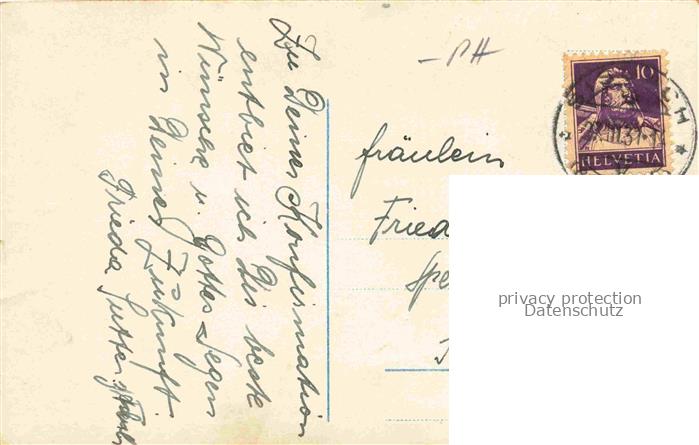 Zu Deiner Konfirmation
entbiet ich Dir beste
Wünsche u. Gottes Segen
in Deiner Zukunft
Frieda Sutter
- PH
fräulein
Fried
Spe
10
HELVETIA
privacy protection
Datenschutz